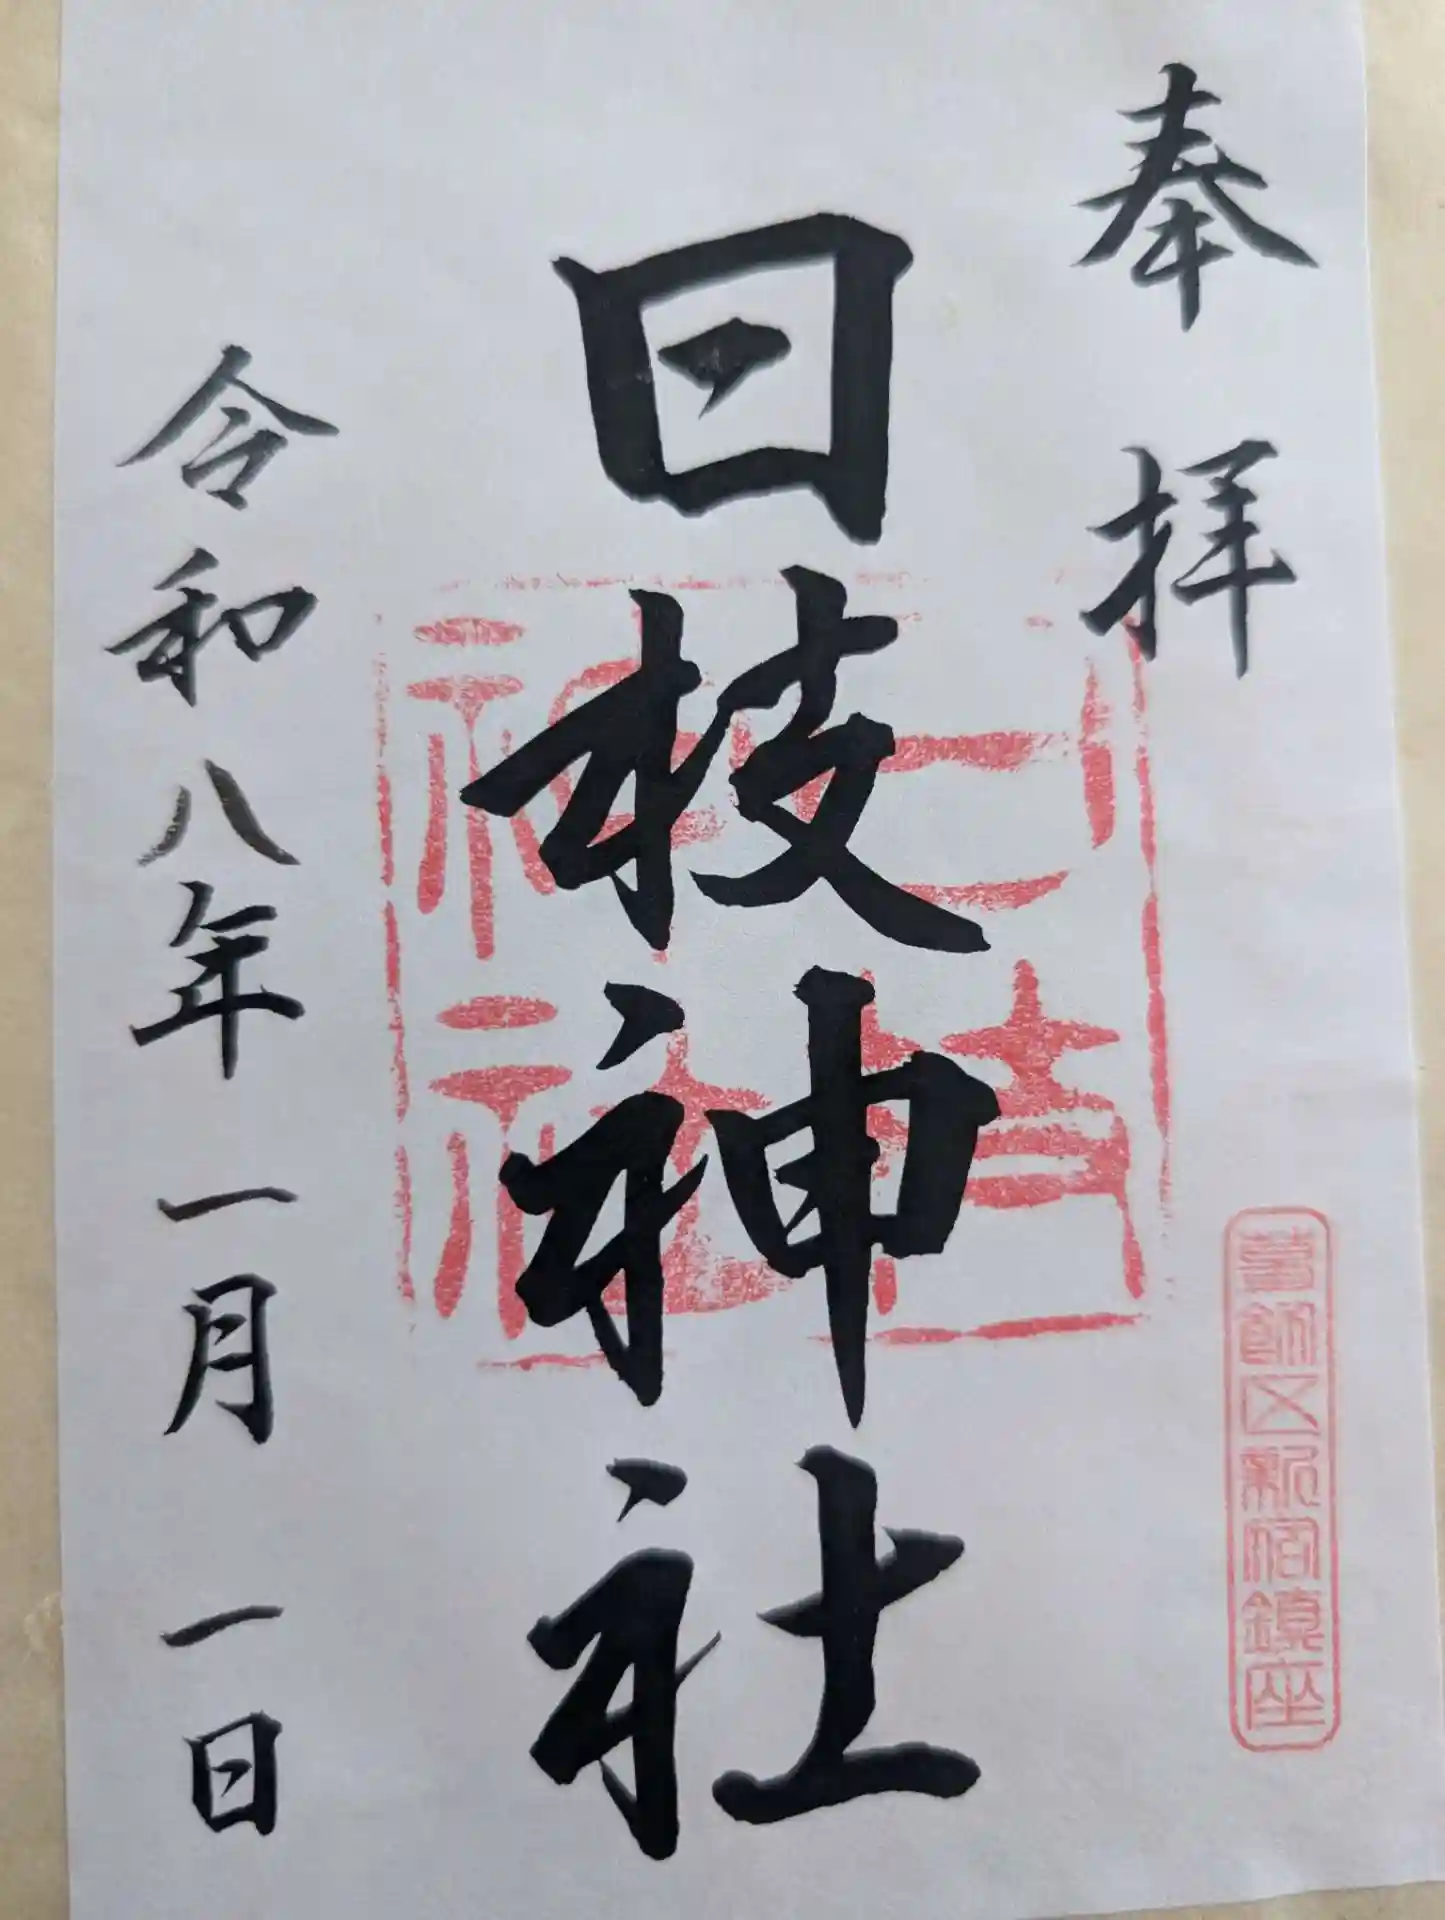 奉拝
葛飾区新宿鎮座
日枝神社
日枝神社
令和八年一月一日